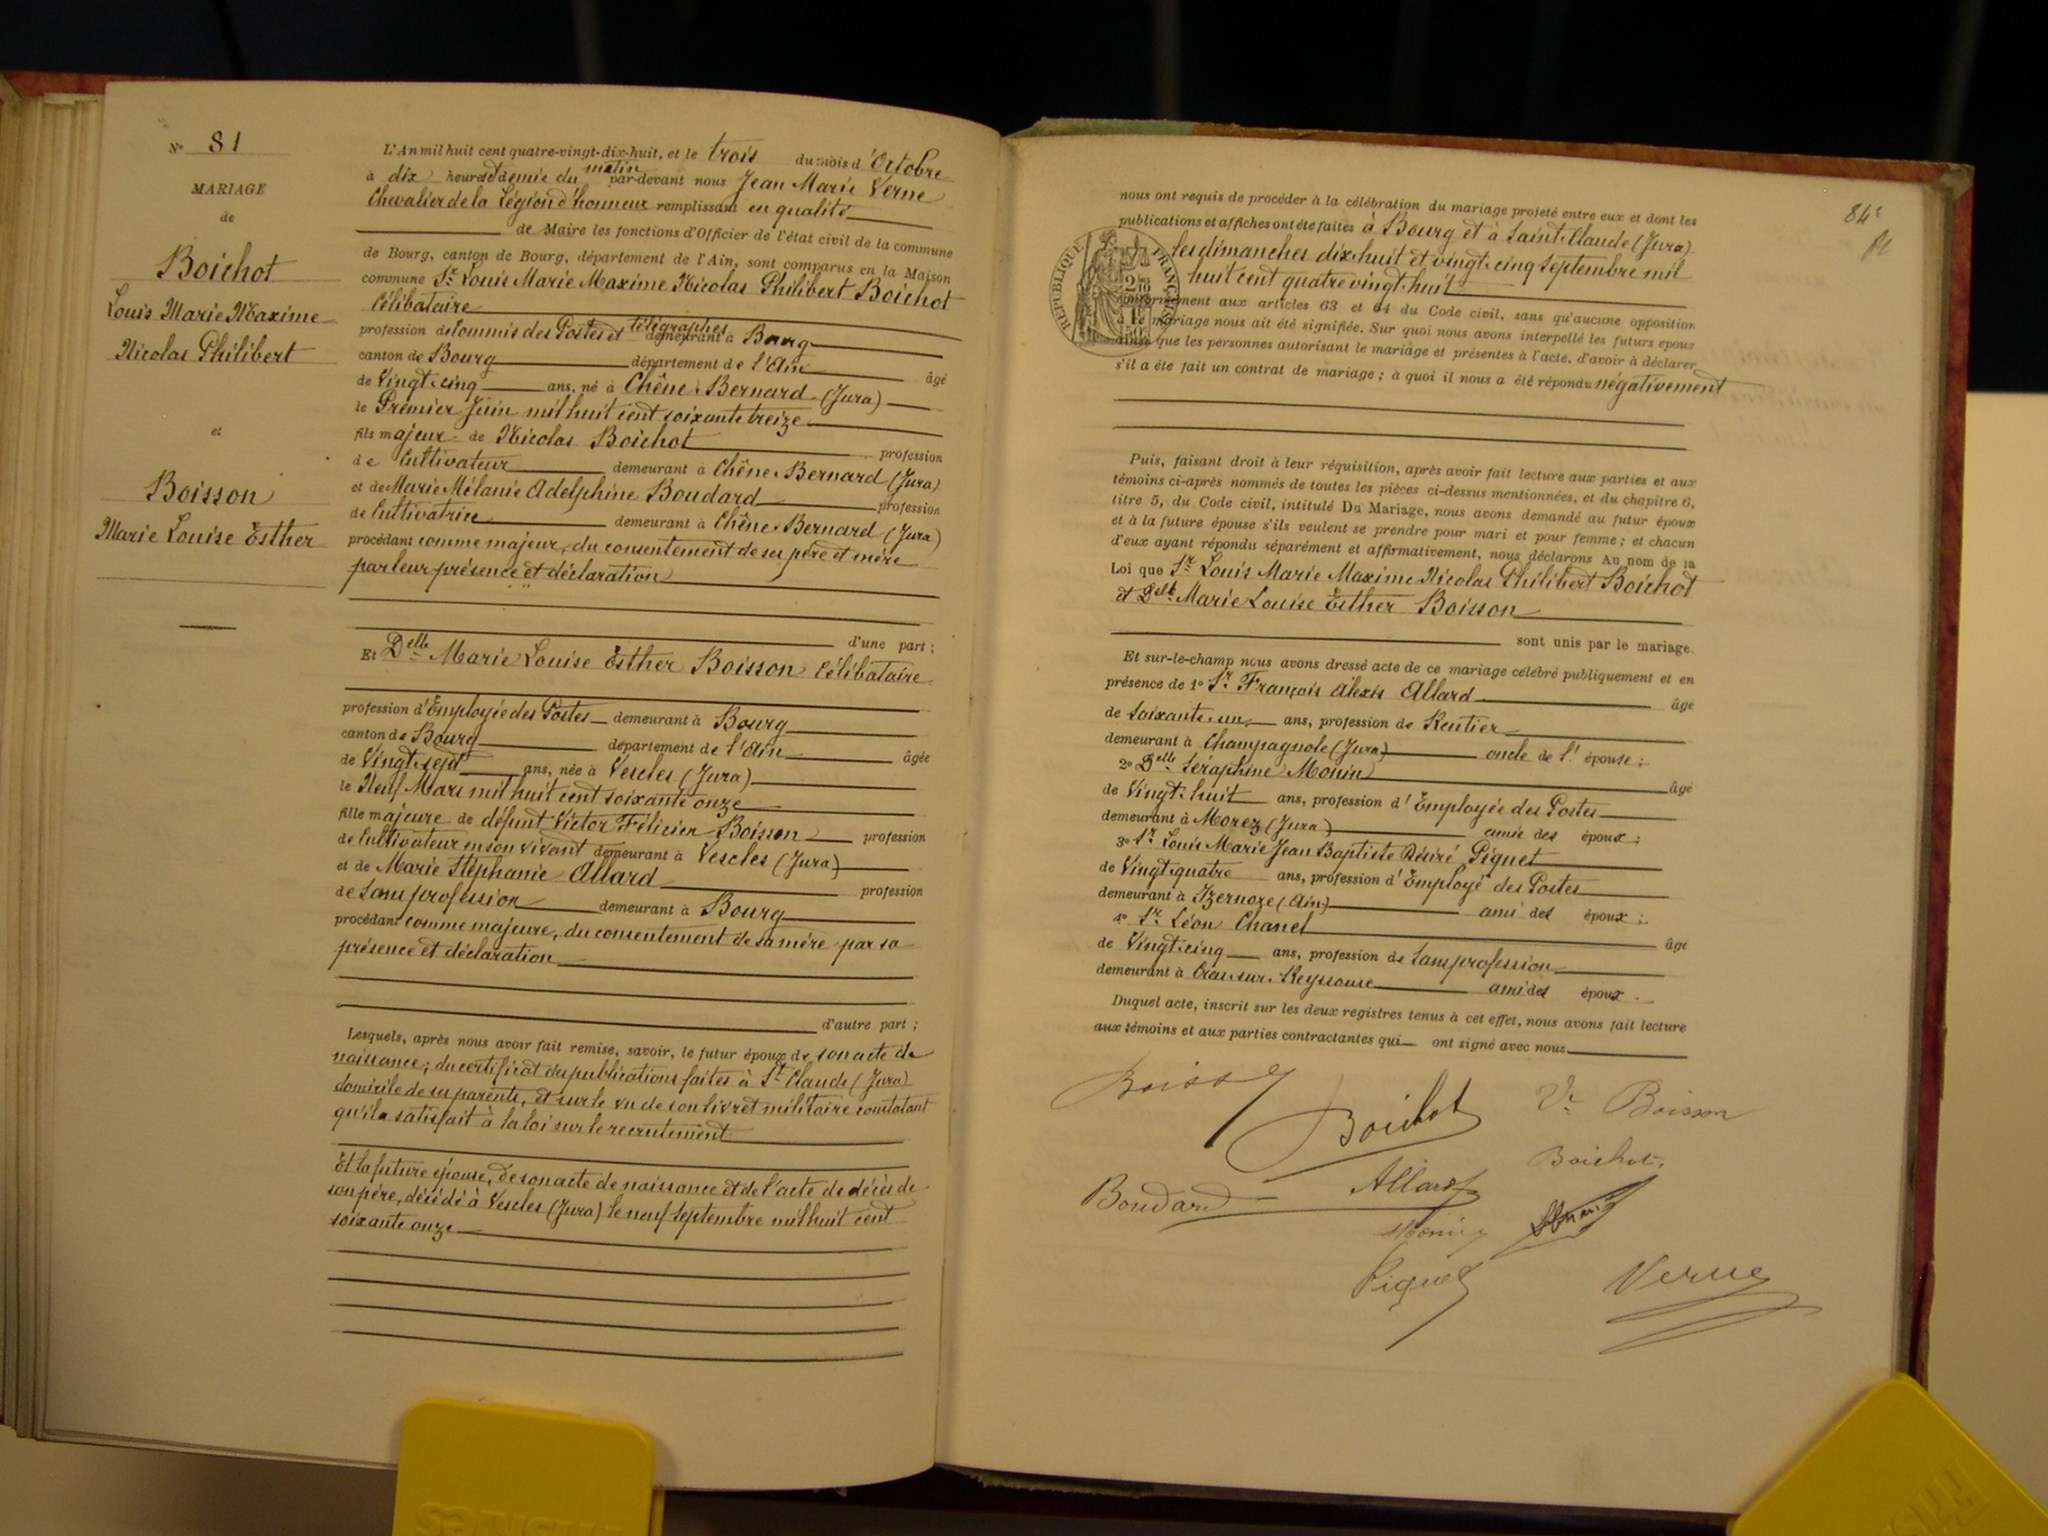 N° 81
MARIAGE
de
Boichot
Louis Marie Maxime
Nicolas Philibert
et
Boisson
Marie Louise Esther
L'An mil huit cent quatre-vingt-dix-huit, et le trois du mois d'Octobre
à dix heures et demie du matin par-devant nous Jean Marie Verne
Chevalier de la Légion d'honneur remplissant en qualité
de Maire les fonctions d'Officier de l'état civil de la commune
de Bourg, canton de Bourg, département de l'Ain, sont comparus en la Maison
commune Sr Louis Marie Maxime Nicolas Philibert Boichot
Célibataire
profession de Commis des Postes et télégraphes demeurant à Bourg
canton de Bourg département de l'Ain âgé
de Vingt-cinq ans, né à Chêne-Bernard (Jura)
le Premier Juin mil huit cent soixante treize
fils majeur de Nicolas Boichot profession
de Cultivateur demeurant à Chêne-Bernard (Jura)
et de Marie Mélanie Adelphine Boudard profession
de Cultivatrice demeurant à Chêne-Bernard (Jura)
procédant comme majeur, du consentement de ses père et mère
par leur présence et déclaration
d'une part ;
Et Delle Marie Louise Esther Boisson Célibataire
profession d'Employée des Postes demeurant à Bourg
canton de Bourg département de l'Ain âgée
de Vingt-sept ans, née à Vescles (Jura)
le Neuf Mars mil huit cent soixante onze
fille majeure de défunt Victor Félicien Boisson profession
de Cultivateur en son vivant demeurant à Vescles (Jura)
et de Marie Stéphanie Allard profession
de Sans profession demeurant à Bourg
procédant comme majeure, du consentement de sa mère par sa
présence et déclaration
d'autre part ;
Lesquels, après nous avoir fait remise, savoir, le futur époux de son acte de
naissance ; du certificat des publications faites à St Claude (Jura)
domicile de ses parents, et sur le vu de son livret militaire constatant
qu'il a satisfait à la loi sur le recrutement
Et la future épouse, de son acte de naissance et de l'acte de décès de
son père, décédé à Vescles (Jura) le neuf septembre mil huit cent
soixante onze
84e
nous ont requis de procéder à la célébration du mariage projeté entre eux et dont les
publications et affiches ont été faites à Bourg et à Saint-Claude (Jura)
les dimanches dix-huit et vingt-cinq Septembre mil
huit cent quatre vingt-huit
RÉPUBLIQUE FRANÇAISE
conformément aux articles 63 et 64 du Code civil, sans qu'aucune opposition
à ce mariage nous ait été signifiée. Sur quoi nous avons interpellé les futurs époux
ainsi que les personnes autorisant le mariage et présentes à l'acte, d'avoir à déclarer
s'il a été fait un contrat de mariage ; à quoi il nous a été répondu négativement
Puis, faisant droit à leur réquisition, après avoir fait lecture aux parties et aux
témoins ci-après nommés de toutes les pièces ci-dessus mentionnées, et du chapitre 6,
titre 5, du Code civil, intitulé Du Mariage, nous avons demandé au futur époux
et à la future épouse s'ils veulent se prendre pour mari et pour femme ; et chacun
d'eux ayant répondu séparément et affirmativement, nous déclarons Au nom de la
Loi que Sr Louis Marie Maxime Nicolas Philibert Boichot
et Delle Marie Louise Esther Boisson
sont unis par le mariage.
Et sur-le-champ nous avons dressé acte de ce mariage célébré publiquement et en
présence de 1° Sr François Alexis Allard âgé
de Soixante-un ans, profession de Rentier
demeurant à Champagnole (Jura) oncle de l'épouse ;
2° Delle Séraphine Monin âgé
de Vingt-huit ans, profession d'Employée des Postes
demeurant à Morez (Jura) amie des époux ;
3° Sr Louis Marie Jean Baptiste Désiré Piquet
de Vingt-quatre ans, profession d'Employé des Postes
demeurant à Izernore (Ain) ami des époux ;
4° Sr Léon Chanel âgé
de Vingt-cinq ans, profession de Sans profession
demeurant à Cras-sur-Reyssouze ami des époux.
Duquel acte, inscrit sur les deux registres tenus à cet effet, nous avons fait lecture
aux témoins et aux parties contractantes qui ont signé avec nous
Boisson
Boichot
Ve Boisson
Boichot
Boudard
Allard
Monin
Piquet
Verne